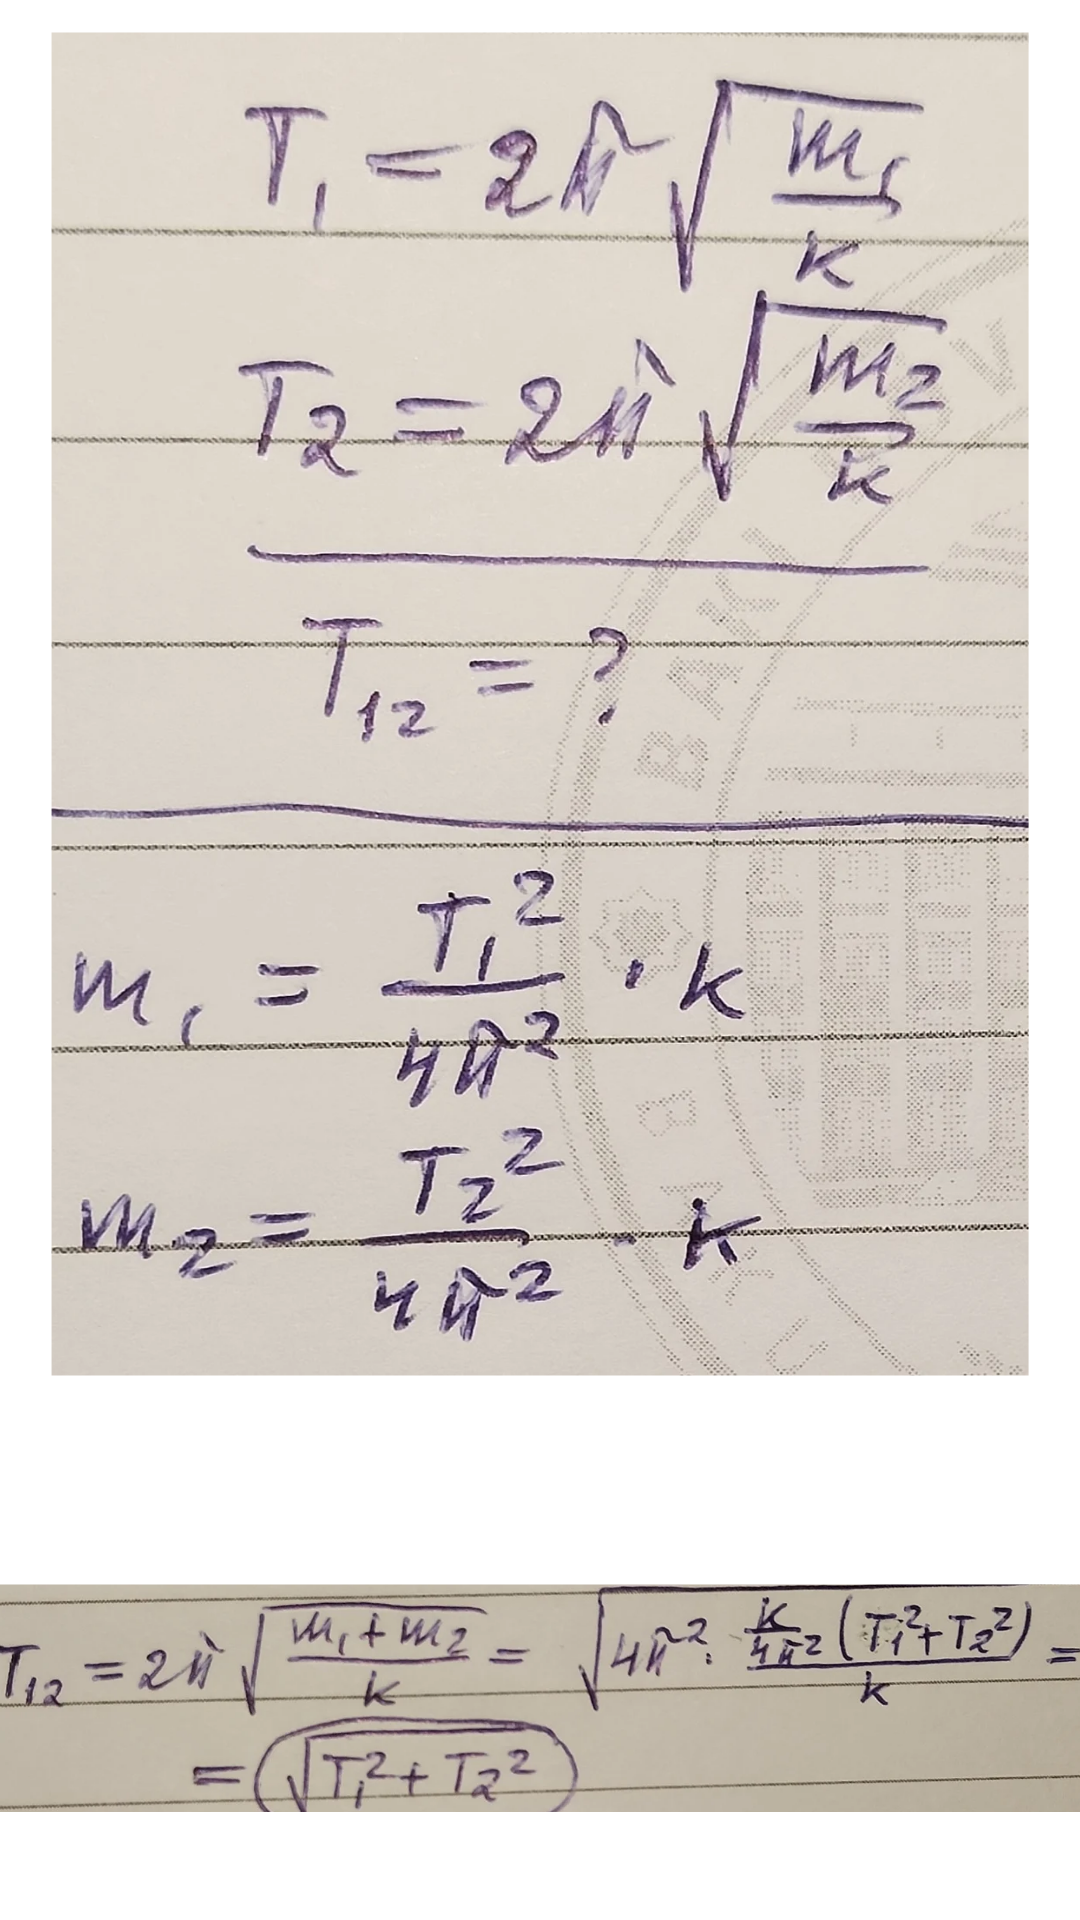 T₁ = 2π √(m₁/k)
T₂ = 2π √(m₂/k)
T₁₂ = ?
m₁ = T₁²/4π² · k
m₂ = T₂²/4π² · k
T₁₂ = 2π √((m₁+m₂)/k) = √(4π² · k/4π² (T₁²+T₂²)/k) =
= √(T₁² + T₂²)